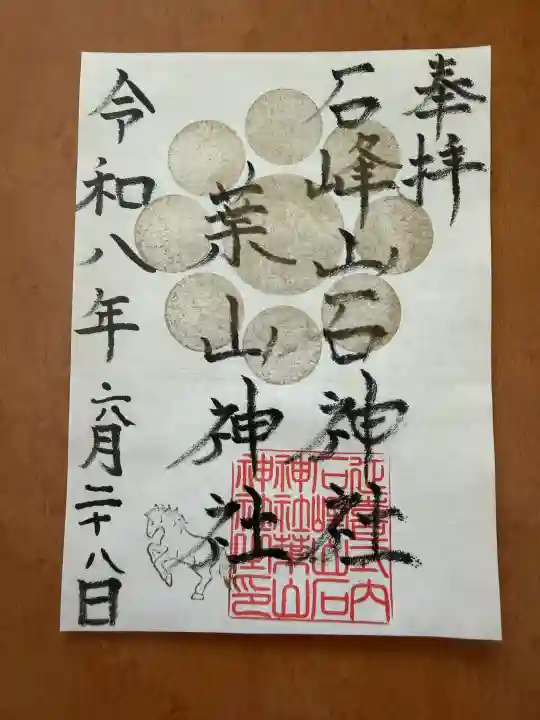 奉拝
石峰山石神社
葉山神社
令和八年六月二十八日
延喜式内
石峰山石
神社葉山
神社之印